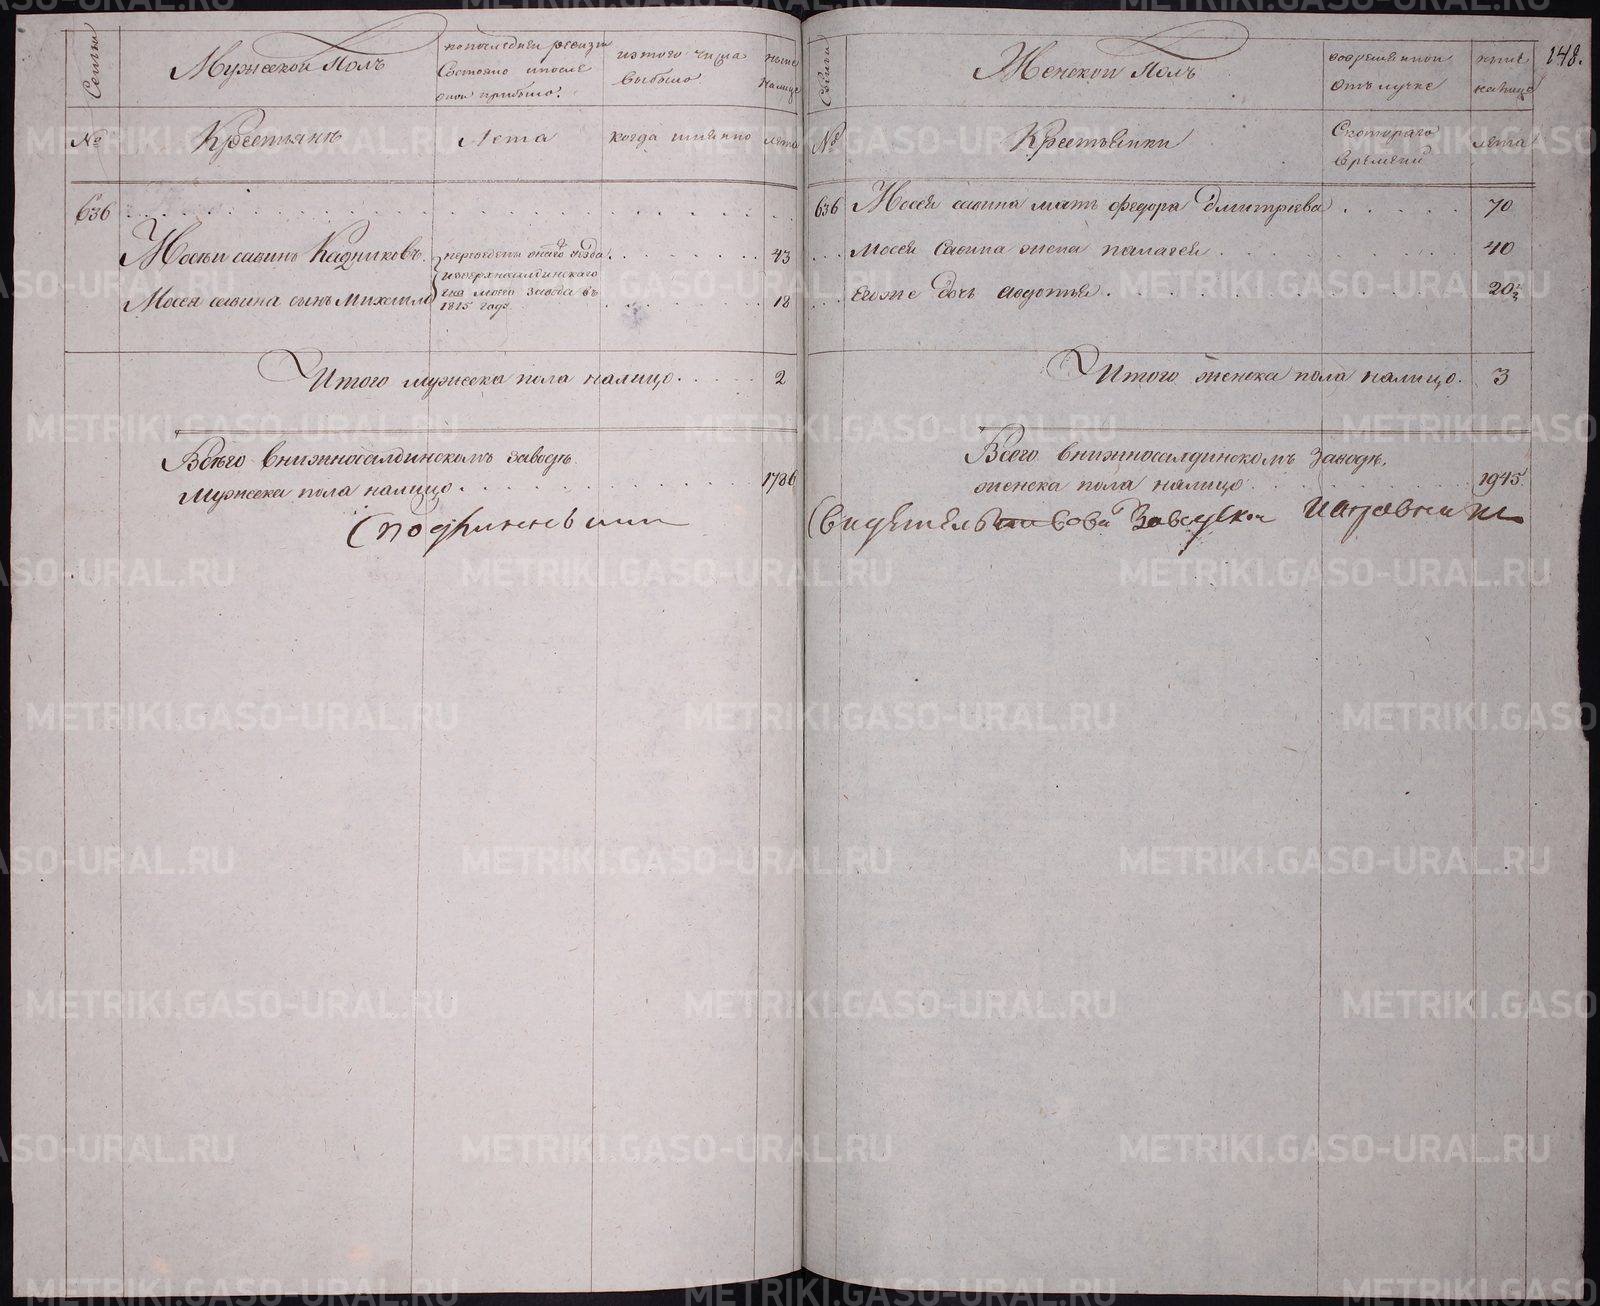 Семьи
Мужеской Полъ
по последней ревизии
Состояло и после
оной прибыло.
из того числа
выбыло
ныне
налице
№
Крестьянъ
Лета
когда именно
лета
636
Мосеи савинъ Кадниковъ.
переведены онаго уезда
изверхнесалдинскаго
завода въ
1815 годе
43
Мосея савина сынъ Михаило
18
Итого мужеска пола налицо
2
Всего внижнесалдинскомъ заводе
мужеска пола налицо
1786
Сподлиннымъ
148.
Семьи
Женской Полъ
вовременной
отлучке
ныне
налице
№
Крестьянки
Скотораго
времени
лета
636
Мосея савина мать федора Дмитриева
70
Мосея Савина жена палагея
40
егоже дочь авдотья
20½
Итого женска пола налицо.
3
Всего внижнесалдинскомъ заводе,
женска пола налицо
1945
свидетельствовалъ Заводской Исправникъ
METRIKI.GASO-URAL.RU